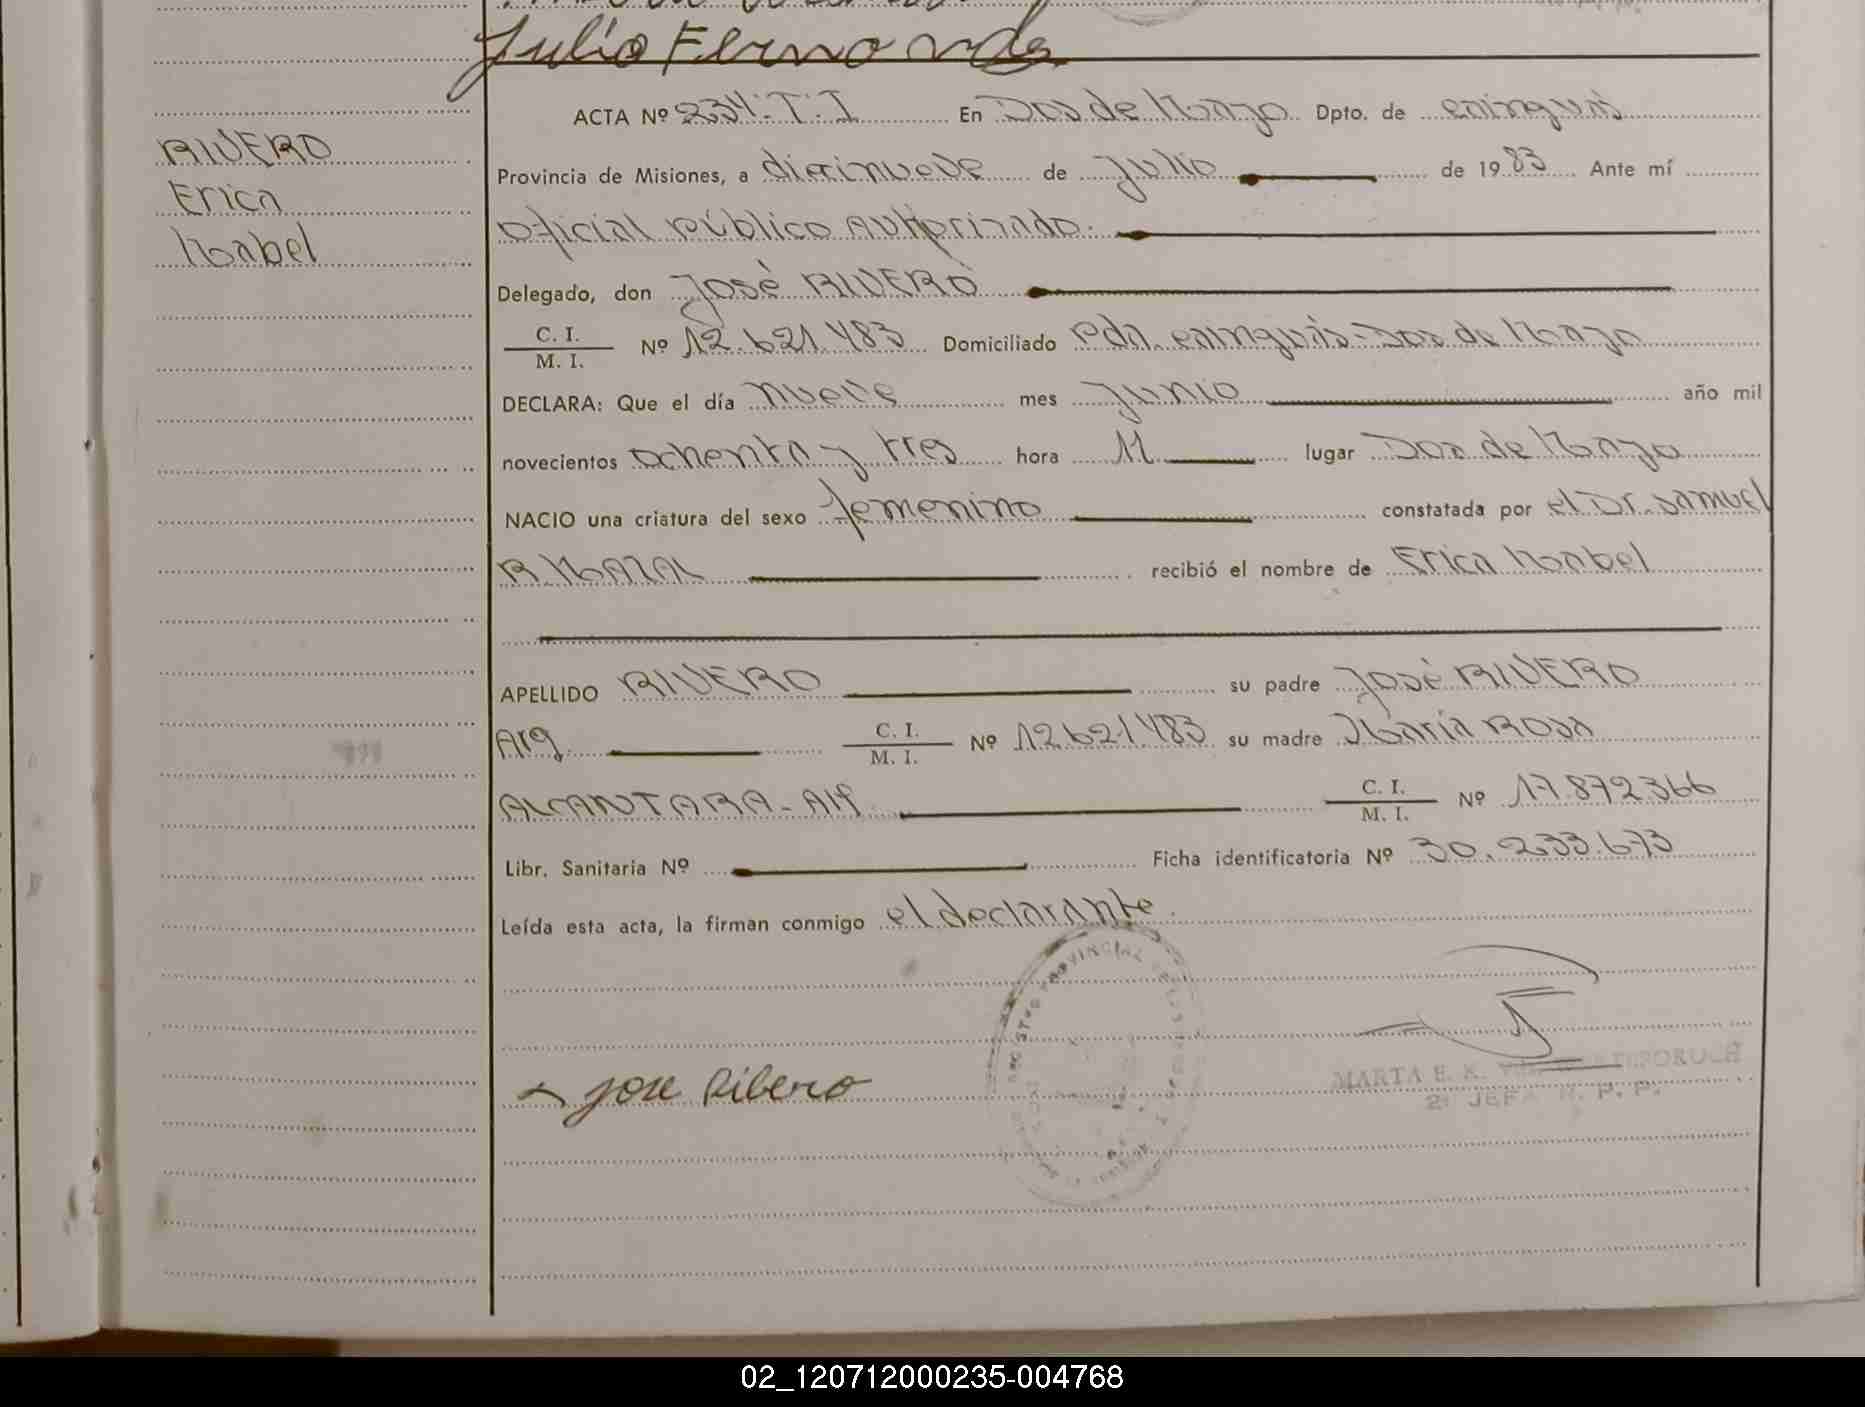 Julio Fernando
ACTA Nº 234. T. I En Dos de Mayo Dpto. de Cainguás
RIVERO
Erica
Mabel
Provincia de Misiones, a diecinueve de Julio de 1983 Ante mí
Oficial Público Autorizado.
Delegado, don José RIVERO
C. I.
M. I. Nº 12.621.483 Domiciliado Pdn. Cainguás-Dos de Mayo
DECLARA: Que el día nueve mes Junio año mil
novecientos ochenta y tres hora 11 lugar Dos de Mayo
NACIO una criatura del sexo femenino constatada por el Dr. Samuel
R. MAZAL recibió el nombre de Erica Mabel
APELLIDO RIVERO su padre José RIVERO
Arg. C. I. M. I. Nº 12.621.483 su madre María Rosa
ALCANTARA - Arg. C. I. M. I. Nº 17.872.366
Libr. Sanitaria Nº Ficha identificatoria Nº 30.233.673
Leída esta acta, la firman conmigo el declarante.
PROVINCIAL
Jose Ribero
MARTA E. K.
2º JEFA R. P. P.
02_120712000235-004768